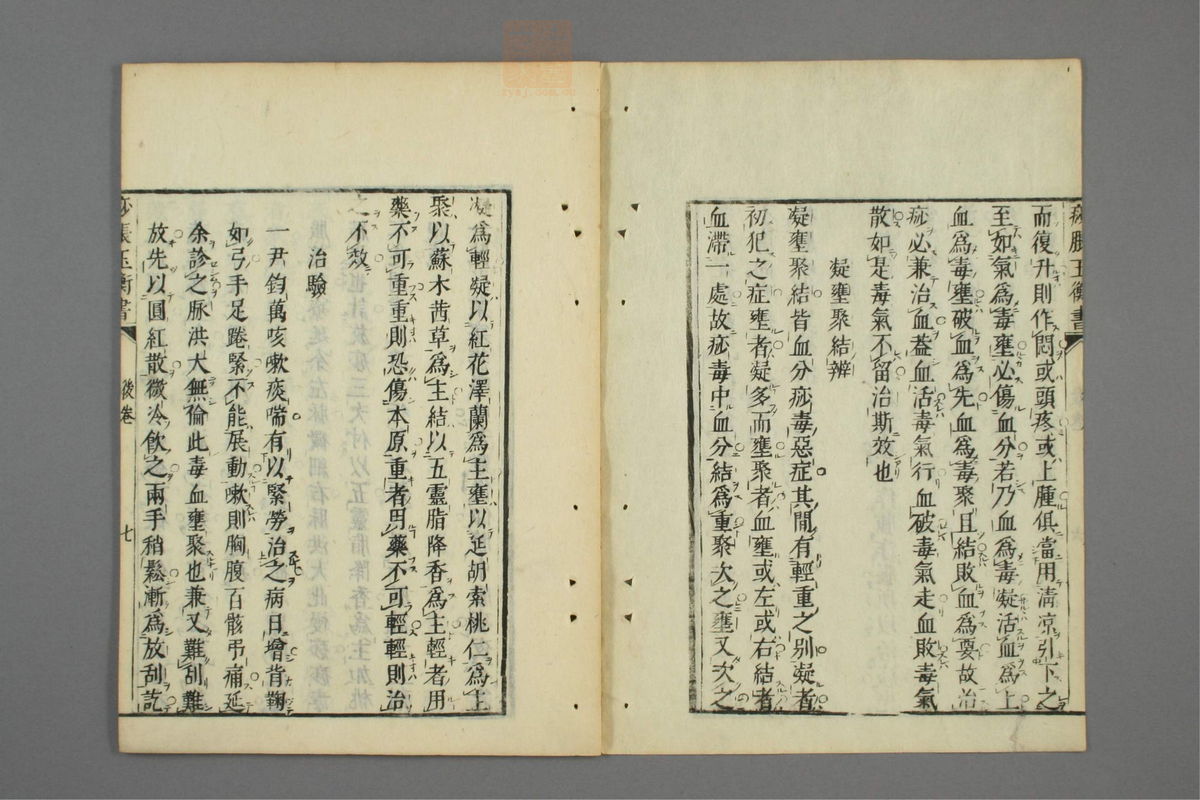 痧脹玉衡書
而復升則作悶或頭疼或上腫俱當用淸凉引下之
至如氣爲毒壅必傷血分若乃血爲毒凝活血爲上
血爲毒壅破血爲先血爲毒聚且結敗血爲要故治
痧必兼治血葢血活毒氣行血破毒氣走血敗毒氣
散如是毒氣不留治斯效也
凝壅聚結辨
凝壅聚結皆血分痧毒惡症其間有輕重之别凝者
初犯之症壅者凝多而壅聚者血壅或左或右結者
血滯一處故痧毒中血分結爲重聚次之壅又次之
凝爲輕凝以紅花澤蘭爲主壅以延胡索桃仁爲主
聚以蘇木茜草爲主結以五靈脂降香爲主輕者用
藥不可重重則恐傷本原重者用藥不可輕輕則治
之不效
治驗
一尹鈞萬咳嗽痰喘有以緊勞治之病日增背鞠
如弓手足踡緊不能展動嗽則胸腹百骸弔痛延
余診之脉洪大無倫此毒血壅聚也兼又難刮難
放先以圓紅散微冷飮之兩手稍鬆漸爲放刮訖
痧脹玉衡書
後卷
七
zysj.com.cn